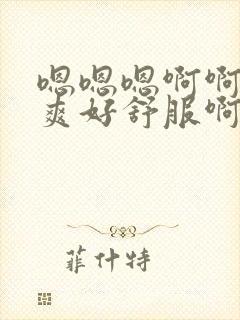 嗯嗯嗯啊啊
爽好舒服啊
菲什特